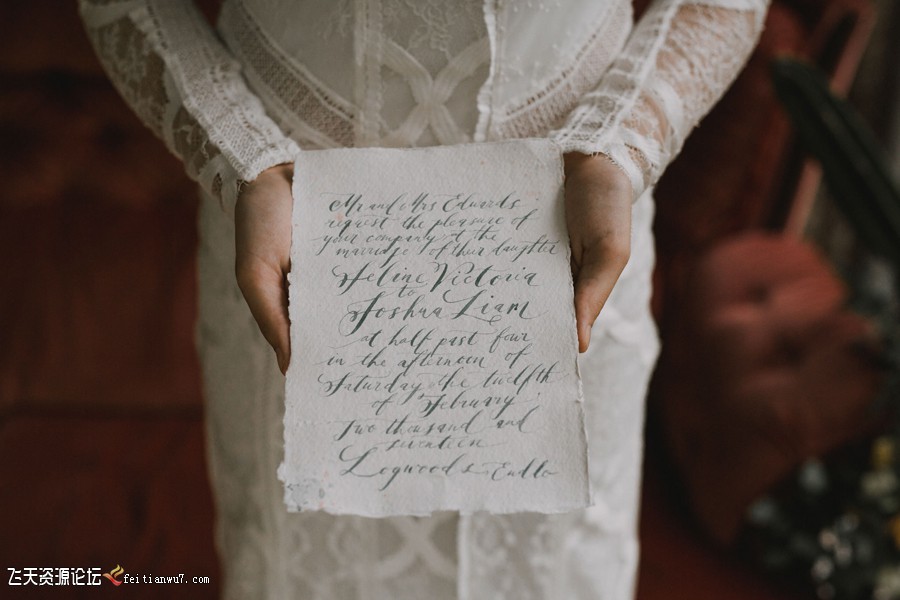 Mr and Mrs Edwards
request the pleasure of
your company at the
marriage of their daughter
Heline Victoria
to
Joshua Liam
at half past four
in the afternoon of
Saturday the twelfth
of February
Two thousand and
seventeen
Logwoods
飞天资源论坛 feitianwu7.com